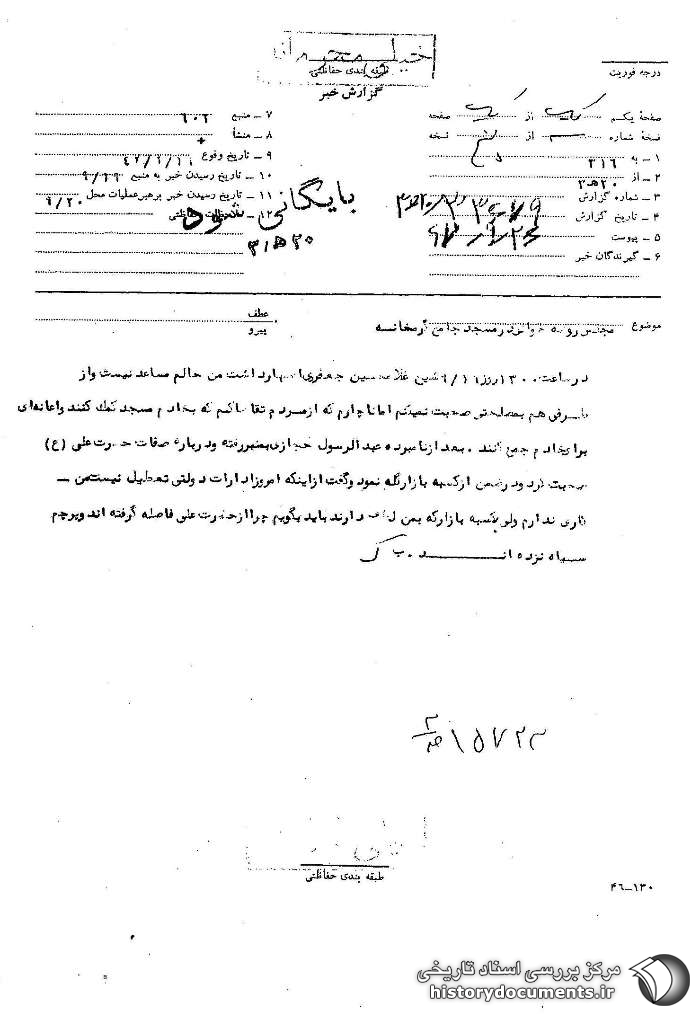 خیلی محرمانه
طبقه بندی حفاظتی
گزارش خبر
درجه فوریت
صفحهٔ یکم از صفحه
نسخهٔ شماره از نسخه
۱ ـ به ۳۱۶
۲ ـ از ۲۰ ه‍ ۳
۳ ـ شماره گزارش
۴ ـ تاریخ گزارش
۵ ـ پیوست
۶ ـ گیرندگان خبر
۷ ـ منبع
۸ ـ منشأ
۹ ـ تاریخ وقوع
۱۰ ـ تاریخ رسیدن خبر به منبع ۹/۱۹
۱۱ ـ تاریخ رسیدن خبر برهبر عملیات محل ۹/۲۰
۱۲ ـ ملاحظات حفاظتی
بایگانی شود
۲۰ ه‍ ۳
عطف
پیرو
موضوع مجلس روضه خوانی در مسجد جامع
در ساعت ۱۳۰۰ روز شیخ غلامحسین جعفری اظهار داشت من حالم مساعد نیست و از
طرفی هم بمصلحتی صحبت نمیکنم اما ناچارم که از مردم تقاضا کنم که بخادم مسجد کمک کنند و اعانه‌ای
برای خادم جمع کنند . بعد از نامبرده عبدالرسول حجازی بمنبر رفته و درباره صفات حضرت علی (ع)
صحبت کرد و در ضمن از کسبه بازار گله نمود و گفت از اینکه امروز ادارات دولتی تعطیل نیست من ـ
کاری ندارم ولی بکسبه بازار که بمن دارند باید بگویم چرا از حضرت علی فاصله گرفته اند و پرچم
سیاه نزده انـــد .
۱۵۷۲۳
طبقه بندی حفاظتی
۴۶-۱۳۰
مرکز بررسی اسناد تاریخی
historydocuments.ir